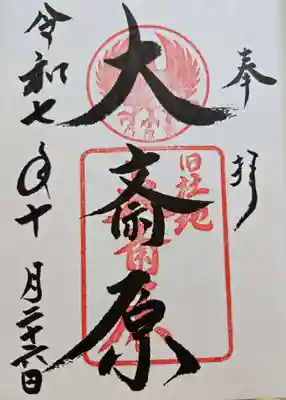 奉拝
大斎原
旧社地
令和七年十月二十六日